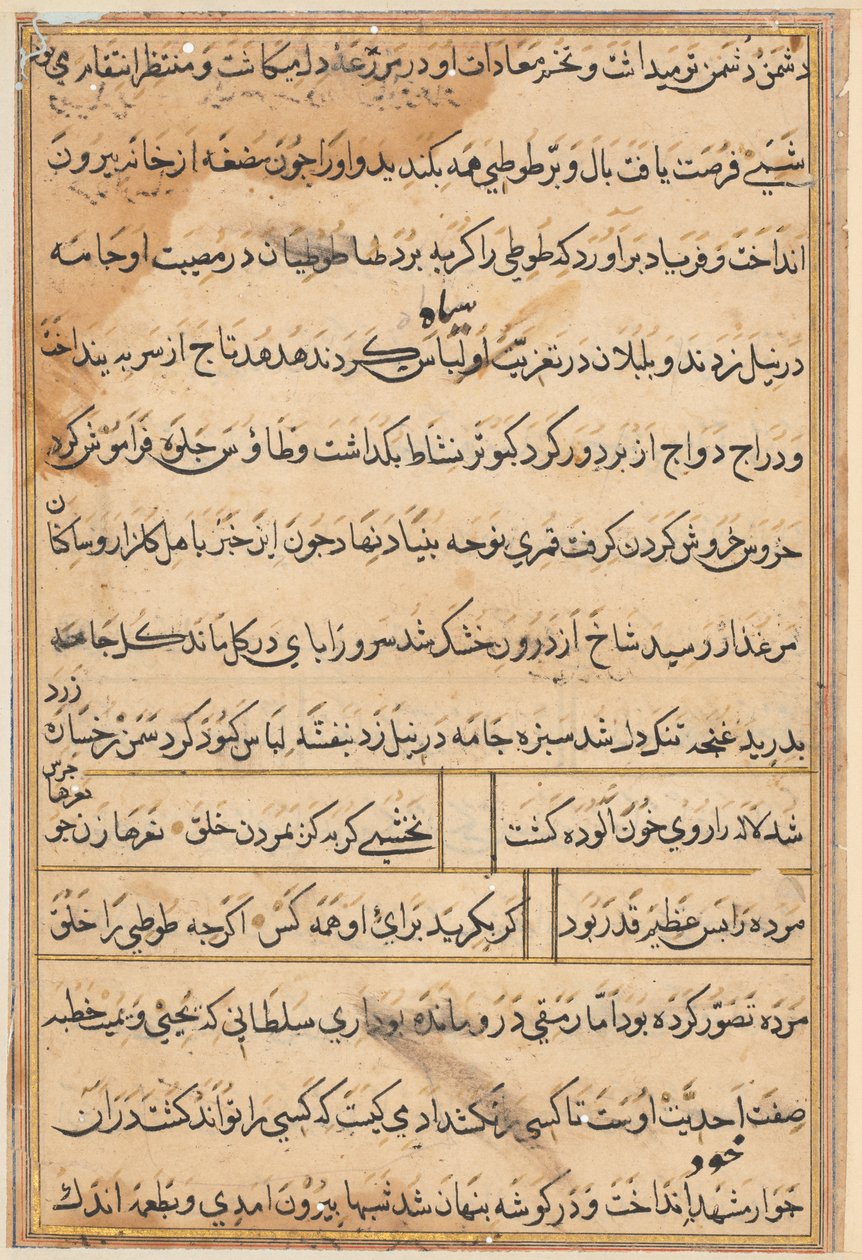 دشمن دشمن تو میداشت و تخم معادات او در مزرعهٔ دل میکاشت و منتظر انتقام می بود
شبی فرصت یافت بال و پر طوطی همه بکندید و او را جون مضغه از خانه بیرون
انداخت و فریاد براورد که طوطی را کربه برد طوطیان در مصیبت او جامه
سیاه
در نیل زدند و بلبلان در تعزیت او لباس کردند هدهد تاج از سر بینداخت
و دراج دواج از بر دور کرد کبوتر نشاط بکذاشت و طاؤس جلوه فراموش کرد
خروس خروش کردن کرفت قمری نوحه بنیاد نهاد جون این خبر باهل کلزار و ساکنان
مرغذار رسید شاخ از درون خشک شد سرو را بای در کل ماند کل جامه
زرد
بدرید غنجه تنک دل شد سبزه جامه در نیل زد بنفشه لباس کبود کرد سمن رخساره
شد لاله را روی خون الوده کشت نخشبی کریه کن بمردن خلق نعرها زن جو
جرس نعرها
مرده را بس عظیم قدر بود کر بکرید برای او همه کس اکرجه طوطی را خلق
مرده تصور کرده بود اما رمقی در و مانده بود اری سلطانی که یحیی و یمیت خطبه
صفت احدیت اوست تا کسی را نکشد ادمی کیست که کسی را تواند کشت در ان
خود
جوار مشهد انداخت و در کوشه بنهان شد شبها بیرون امدی و بطعمه اندک